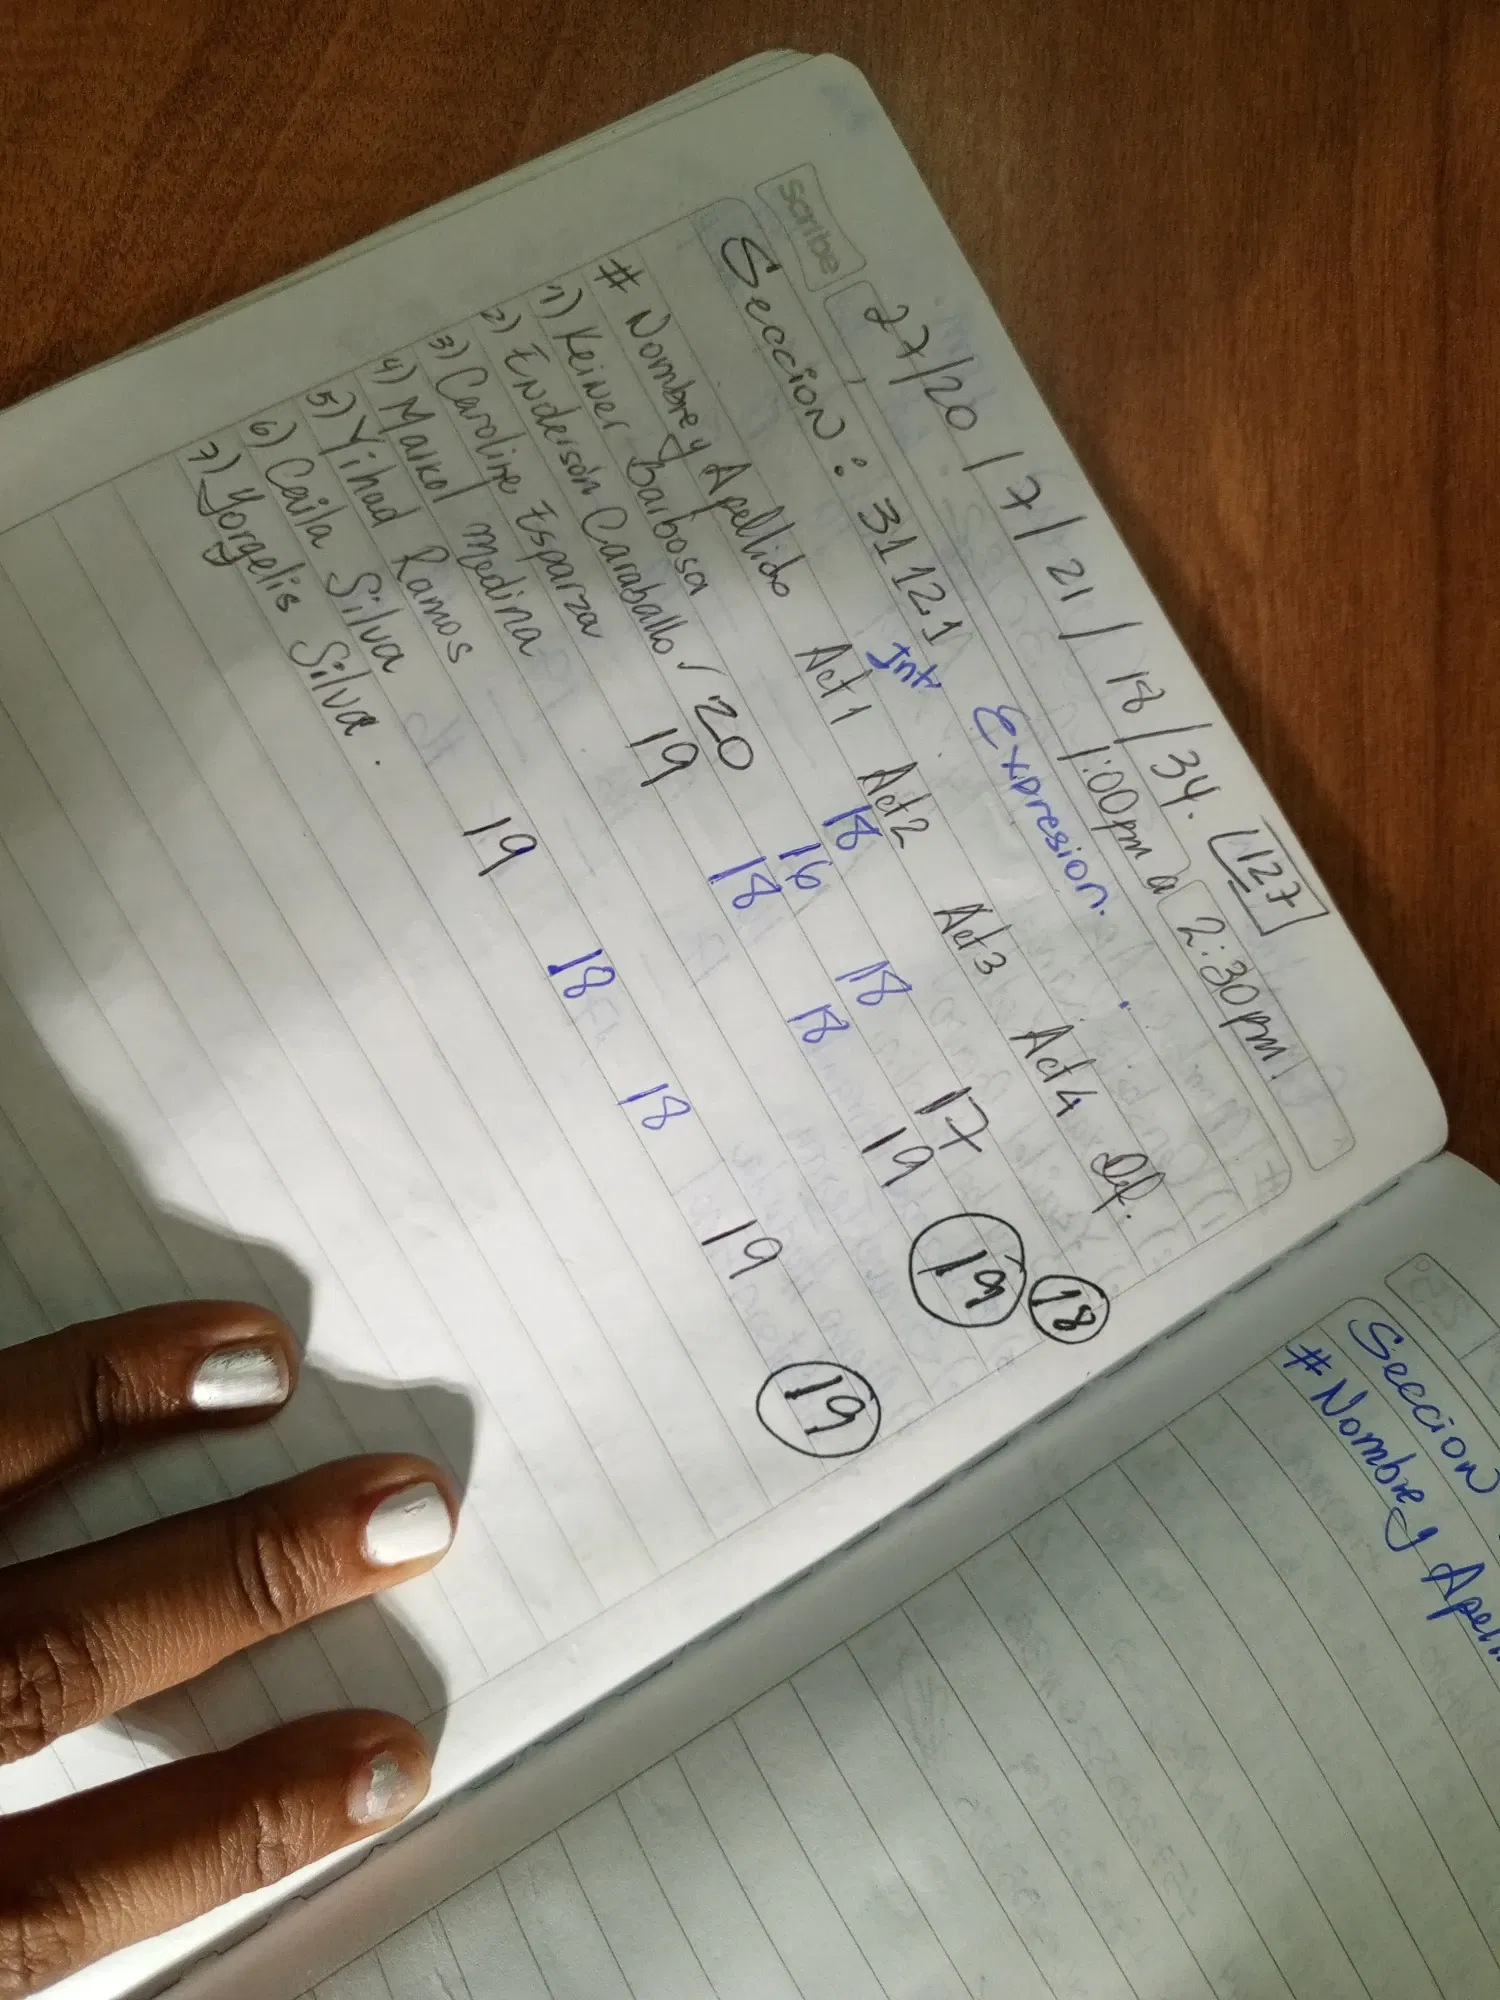 scribe
27/20/7/21/18/34. 127
1:00pm a 2:30pm.
Seccion: 31121 Expresion.
Int.
# Nombre y Apellido Act 1 Act 2 Act 3 Act 4 Def.
1) Keiner Barbosa 18
2) Enderson Caraballo / 20 16 18 17 18
3) Caroline Esparza 19 18 18 19 19
4) Maikol medina
5) Yihad Ramos
6) Caila Silva 19 18 18 19 19
7) Yorgelis Silva.
Seccion
# Nombre y